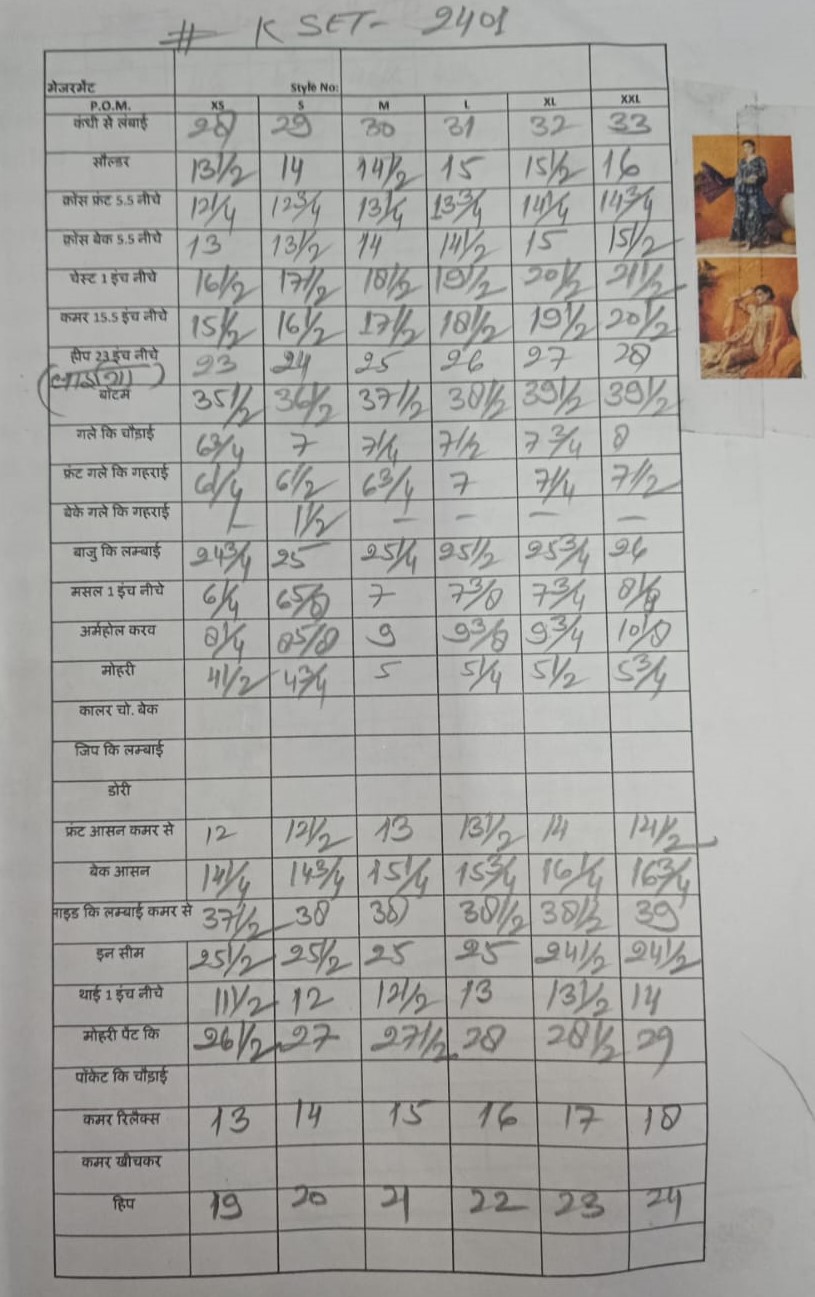 # K SET- 2401
मेजरमेंट Style No:
P.O.M. XS S M L XL XXL
कंधी से लंबाई 28 29 30 31 32 33
सौल्डर 13 1/2 14 14 1/2 15 15 1/2 16
क्रोस फ्रंट 5.5 नीचे 12 1/4 12 3/4 13 1/4 13 3/4 14 1/4 14 3/4
क्रोस बेक 5.5 नीचे 13 13 1/2 14 14 1/2 15 15 1/2
चेस्ट 1 इंच नीचे 16 1/2 17 1/2 18 1/2 19 1/2 20 1/2 21 1/2
कमर 15.5 इंच नीचे 15 1/2 16 1/2 17 1/2 18 1/2 19 1/2 20 1/2
हीप 23 इंच नीचे 23 24 25 26 27 28
बोटम 35 1/2 36 1/2 37 1/2 38 1/2 39 1/2 39 1/2
गले कि चौड़ाई 6 3/4 7 7 1/4 7 1/2 7 3/4 8
फ्रंट गले कि गहराई 6 1/4 6 1/2 6 3/4 7 7 1/4 7 1/2
बेके गले कि गहराई - 1 1/2 - - - -
बाजु कि लम्बाई 24 3/4 25 25 1/4 25 1/2 25 3/4 26
मसल 1 इंच नीचे 6 1/4 6 5/8 7 7 3/8 7 3/4 8 1/8
अर्महोल करव 8 1/4 8 5/8 9 9 3/8 9 3/4 10 1/8
मोहरी 4 1/2 4 3/4 5 5 1/4 5 1/2 5 3/4
कालर चो. बेक
जिप कि लम्बाई
डोरी
फ्रंट आसन कमर से 12 12 1/2 13 13 1/2 14 14 1/2
बेक आसन 14 1/4 14 3/4 15 1/4 15 3/4 16 1/4 16 3/4
साइड कि लम्बाई कमर से 37 1/2 38 38 38 1/2 38 1/2 39
इन सीम 25 1/2 25 1/2 25 25 24 1/2 24 1/2
थाई 1 इंच नीचे 11 1/2 12 12 1/2 13 13 1/2 14
मोहरी पेंट कि 26 1/2 27 27 1/2 28 28 1/2 29
पॉकेट कि चौड़ाई
कमर रिलैक्स 13 14 15 16 17 18
कमर खीचकर
हिप 19 20 21 22 23 24